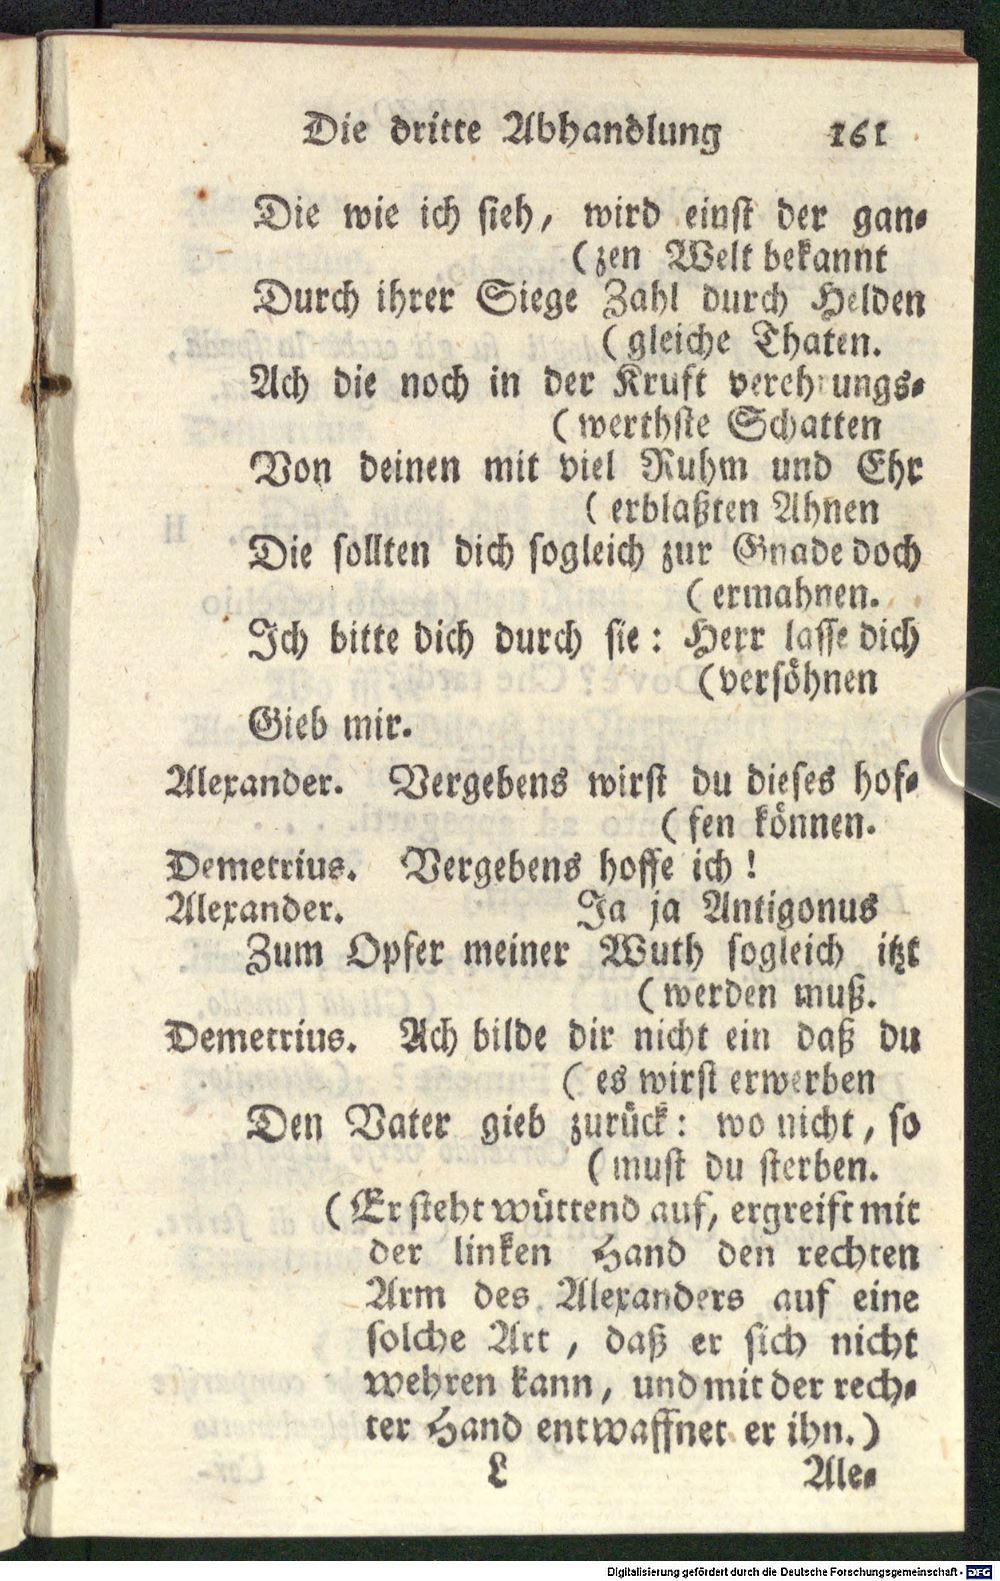 Die dritte Abhandlung 161
Die wie ich sieh, wird einst der gan-
(zen Welt bekannt
Durch ihrer Siege Zahl durch Helden
(gleiche Thaten.
Ach die noch in der Kruft verehrungs-
(werthste Schatten
Von deinen mit viel Ruhm und Ehr
(erblaßten Ahnen
Die sollten dich sogleich zur Gnade doch
(ermahnen.
Ich bitte dich durch sie: Herr lasse dich
(versöhnen
Gieb mir.
Alexander. Vergebens wirst du dieses hof-
(fen können.
Demetrius. Vergebens hoffe ich!
Alexander. Ja ja Antigonus
Zum Opfer meiner Wuth sogleich itzt
(werden muß.
Demetrius. Ach bilde dir nicht ein daß du
(es wirst erwerben
Den Vater gieb zurück: wo nicht, so
(must du sterben.
(Er steht wüttend auf, ergreift mit
der linken Hand den rechten
Arm des Alexanders auf eine
solche Art, daß er sich nicht
wehren kann, und mit der rech-
ter Hand entwaffnet er ihn.)
L Ale-
Digitalisierung gefördert durch die Deutsche Forschungsgemeinschaft - DFG